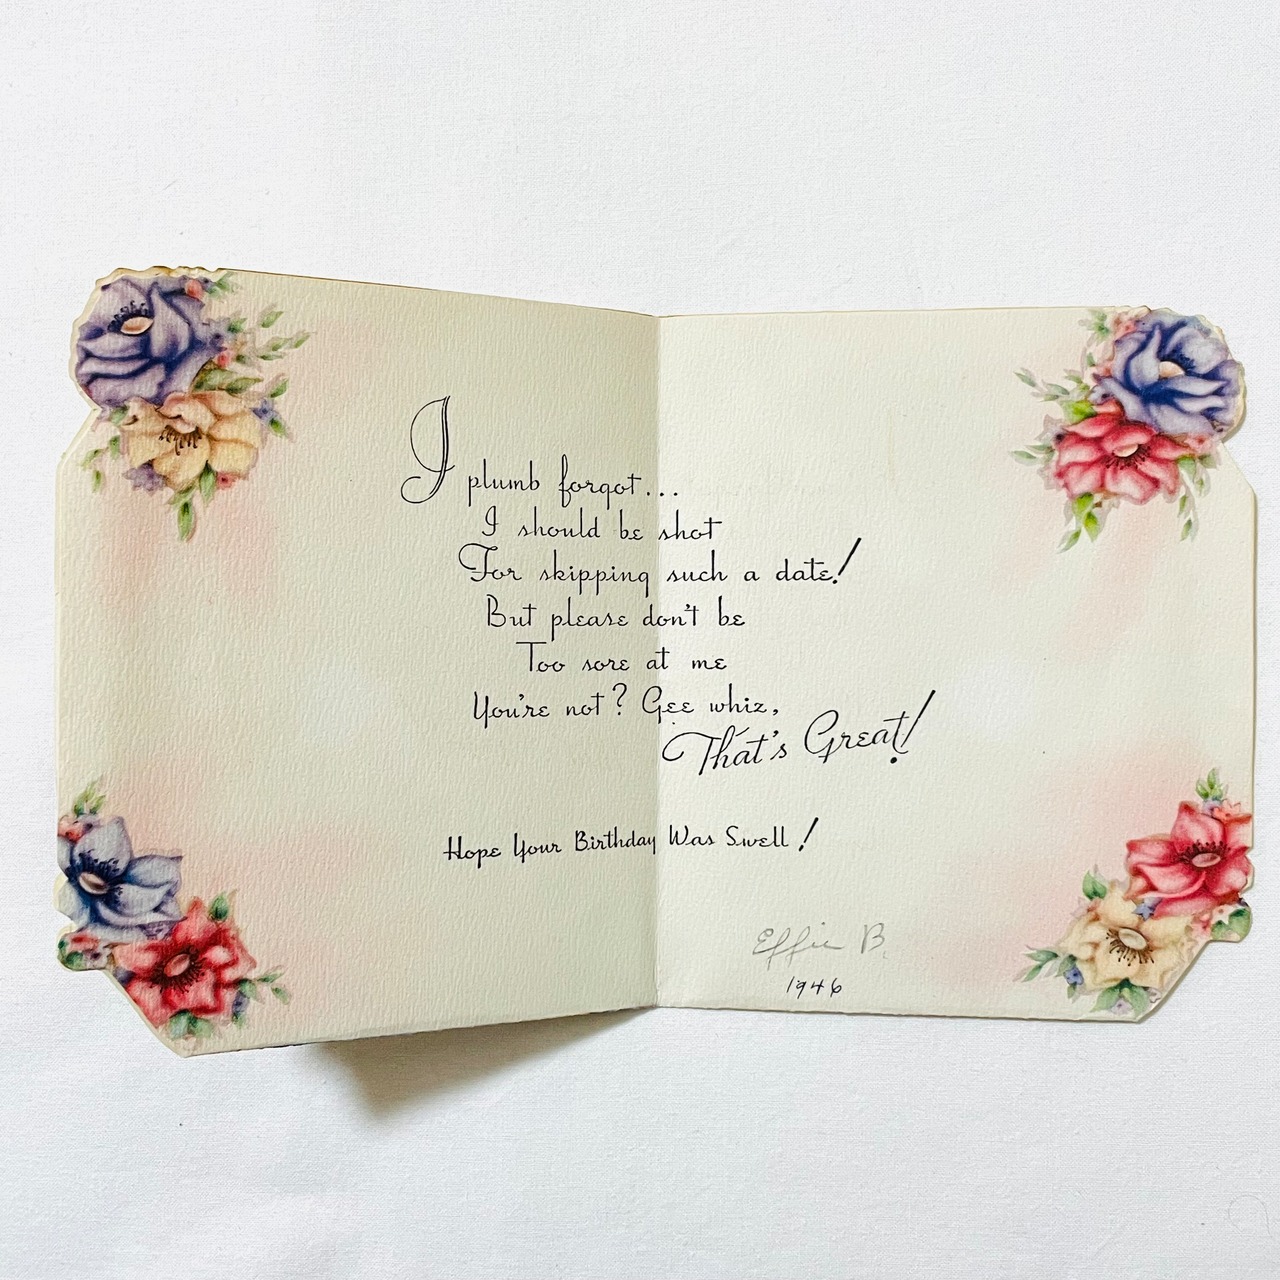 I plumb forgot...
I should be shot
For skipping such a date!
But please don't be
Too sore at me
You're not? Gee whiz,
That's Great!
Hope Your Birthday Was Swell!
Effie B.
1946